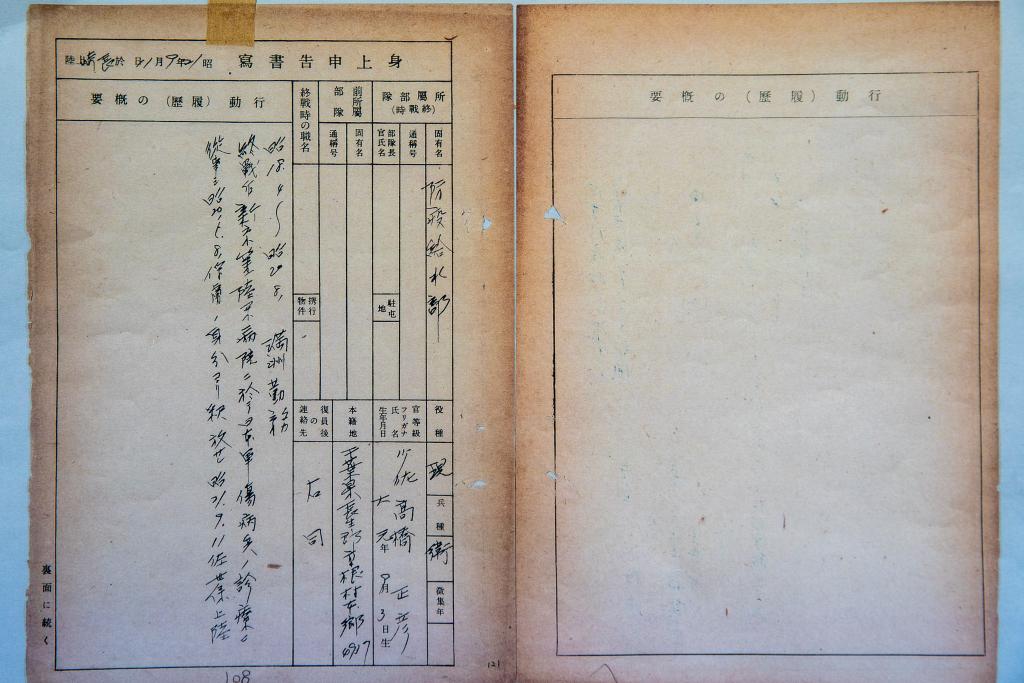 身上申告書寫
昭21年9月11日 於 陸
所屬部隊
(終戰時)
固有名
防疫給水部
通稱号
部隊長
官氏名
駐屯地
前所屬
部隊
固有名
通稱号
終戰時の職名
攜行
物件
役種
現
兵種
衛
徴集年
官等級
フリガナ
氏名
生年月日
少佐
高橋 正彦
大元年 9月3日生
本籍地
千葉県長生郡 村本郷
復員後
の
連絡先
右同
行動(履歷)の概要
昭18.4〜昭20.8. 満洲勤務
終戦后 陸軍病院ニ於テ日本軍傷病兵ノ診療ニ
従事 昭 8. ノ身分ヨリ釈放セ 昭21.9.11佐世保上陸
裏面に続く
121
108
行動(履歷)の概要